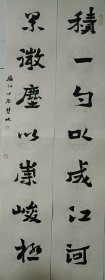 積一勺以成江河
累微塵以崇峻極